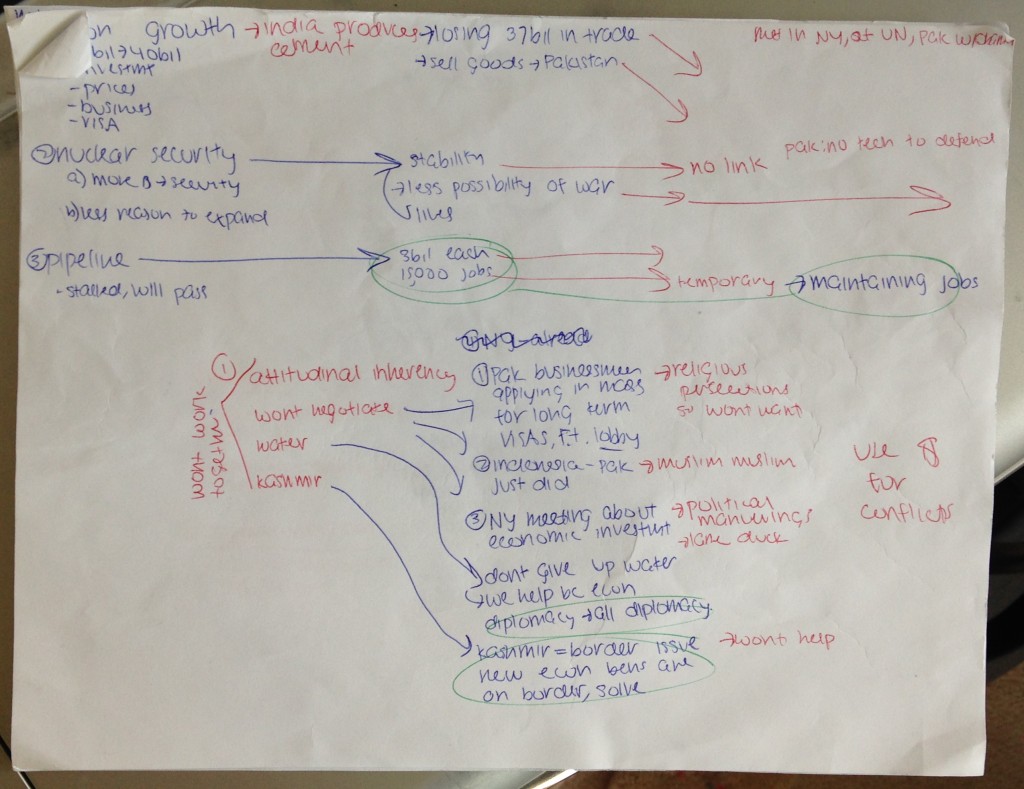 on growth → india produces → losing 37bil in trade
cement
→ sell goods → Pakistan
met in NY, at UN, Pak
bil → 40bil
- prices
- business
- VISA
② nuclear security → stability → no link
pak: no tech to defend
a) more → security
→ less possibility of war →
b) less reason to expand
lives
③ pipeline → 3bil each →
15000 jobs → temporary → maintaining jobs
- stalled, will pass
wont work together
① attitudinal inherency
wont negotiate
water
kashmir
① Pak businessmen → religious
applying in persecutions
for long term so wont want
VISAS, lobby
② indonesia - pak → muslim muslim
just did
③ NY meeting about → political
economic investmt manuverings
→ lame duck
use $
for
conflicts
dont give up water
→ we help bc econ
diplomacy → all diplomacy
kashmir = border issue → wont help
new econ bens are
on border, solve